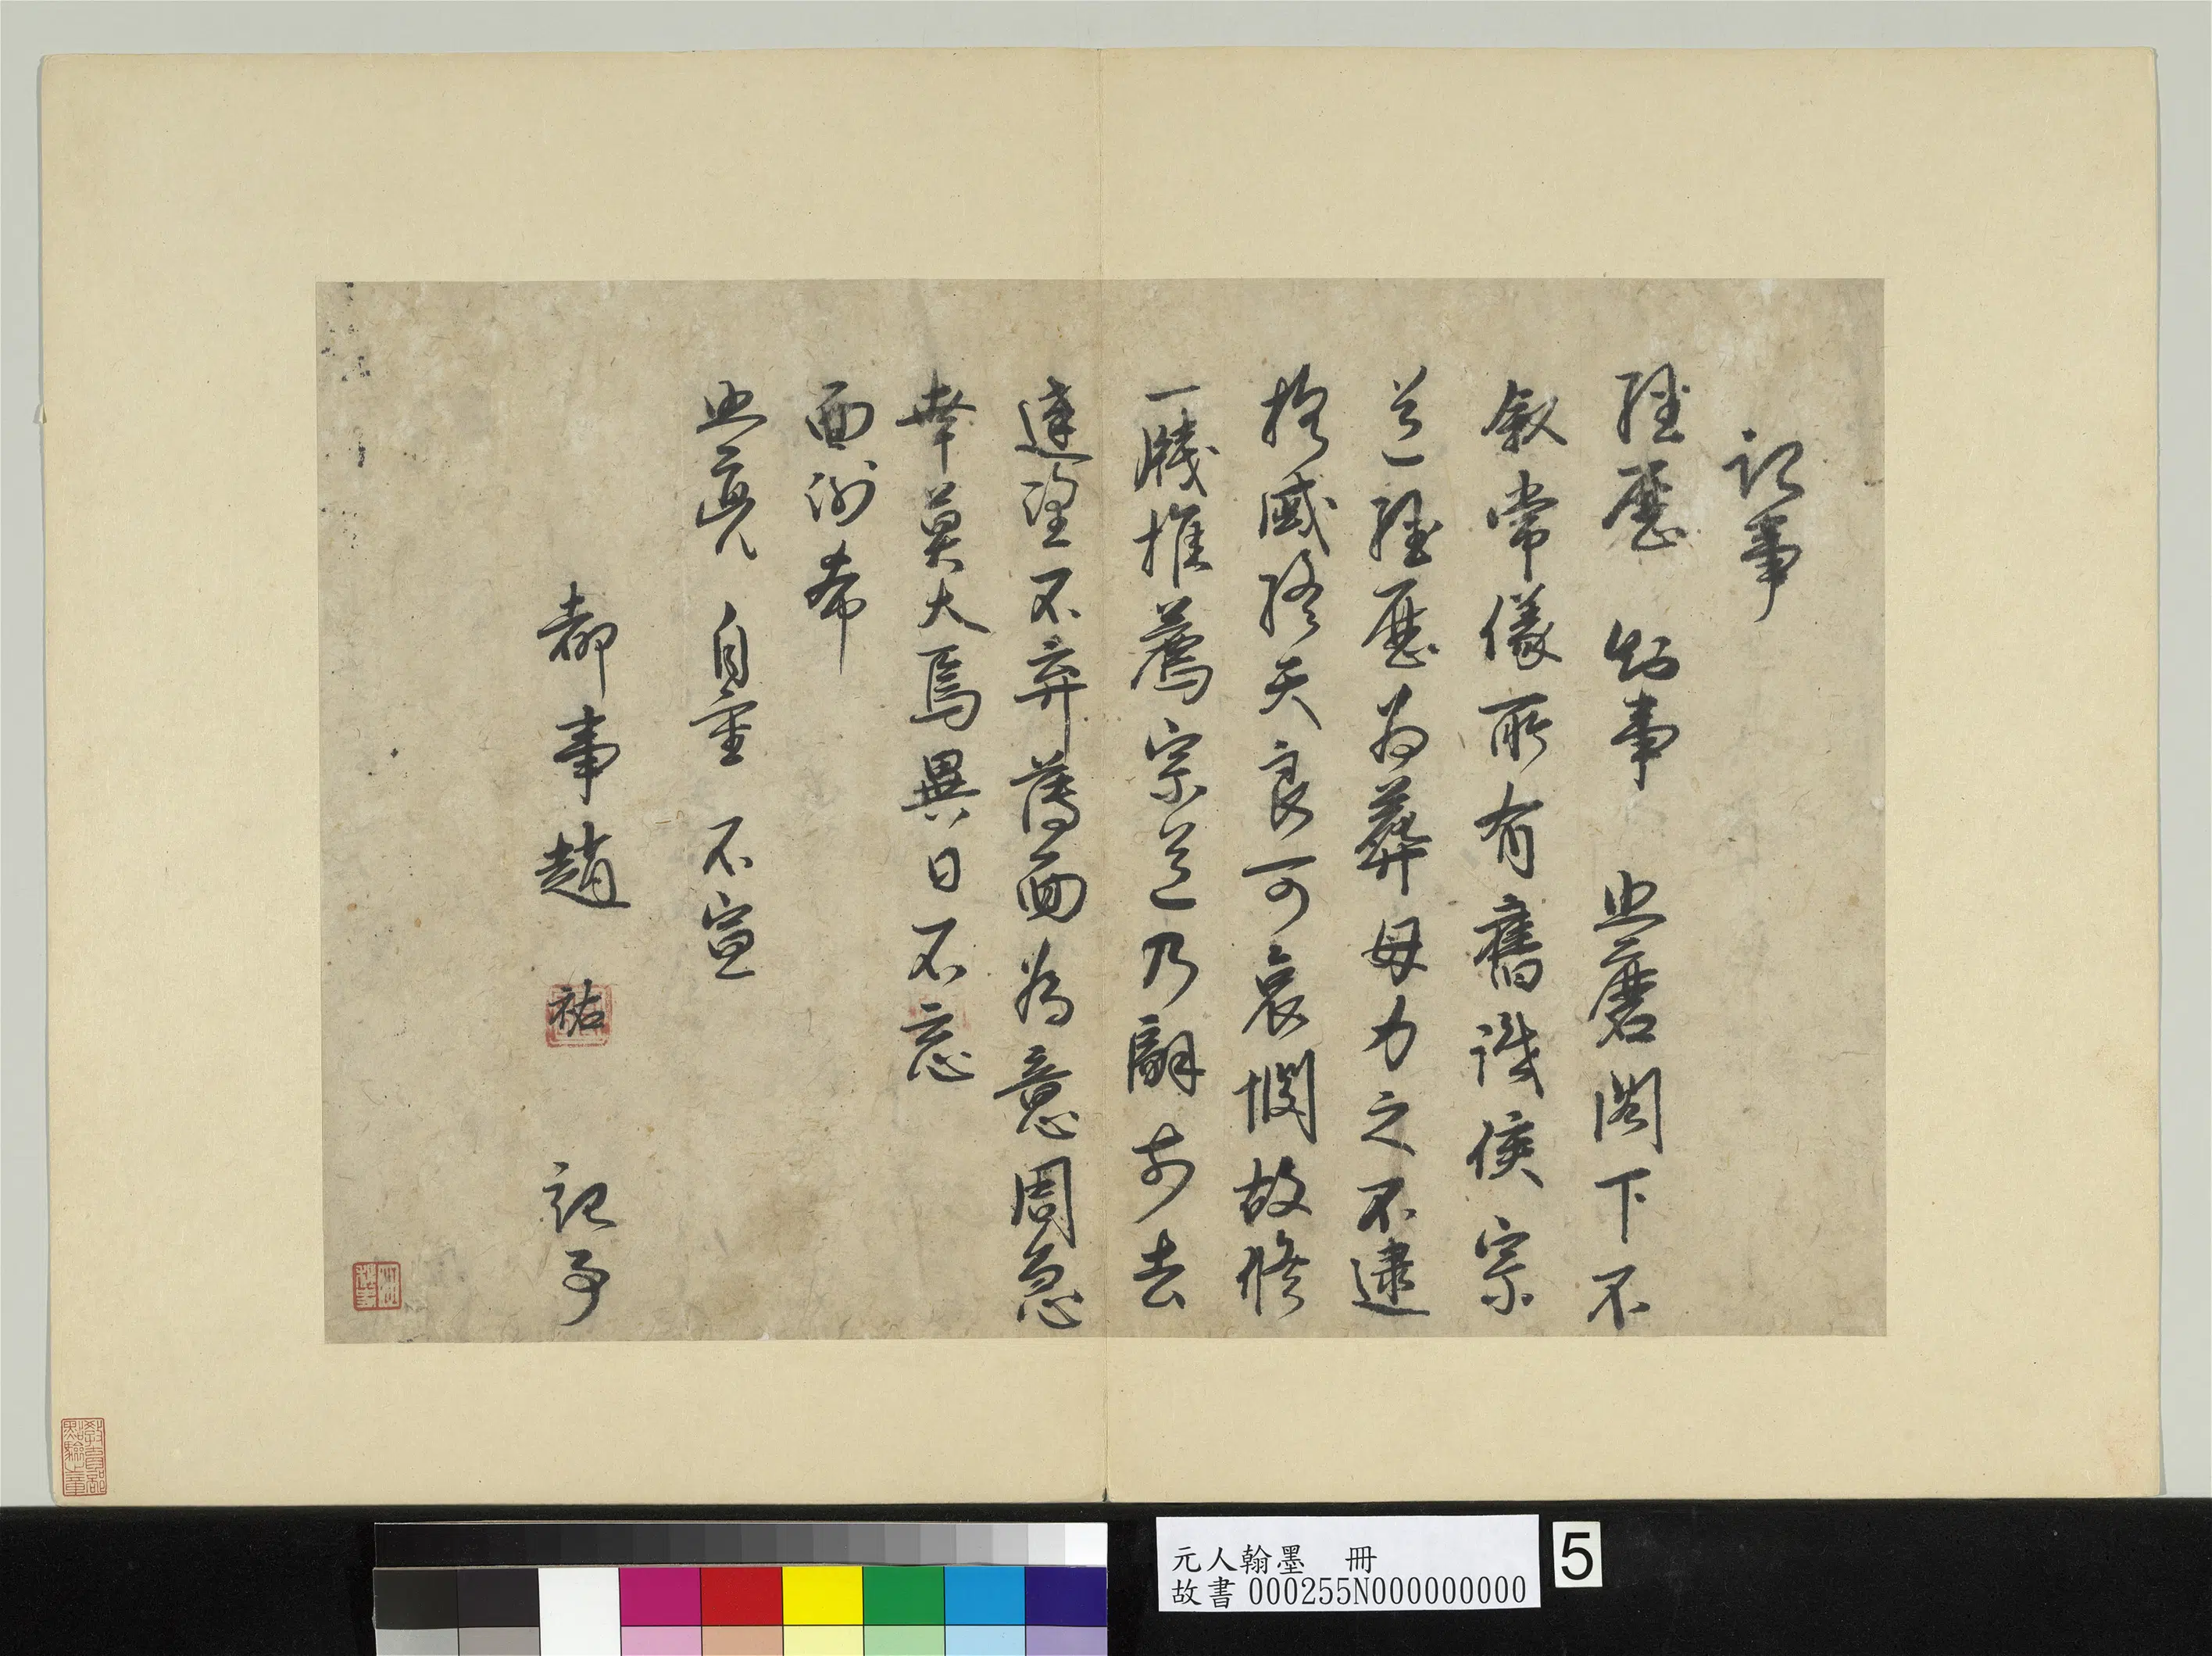 記事
經歷 知事 照磨閣下不
敘常儀所有舊識侯宗
道經歷為葬母力之不逮
抱感終天良可哀憫故修
一牋推薦宗道乃辭前去
達望不弃薄面為意周急
幸莫大焉異日不忘
面謝希
照亮 自重 不宣
都事趙 祐 記事
教育部點驗之章
元人翰墨 冊
故書000255N000000000
5